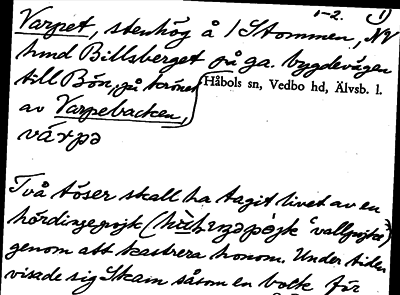 1-2. 1)
Varpet, stenhög å /Stommen, NV
hmd Billsberget på ga. bygdevägen
till Bön, på krönet
Håbols sn, Vedbo hd, Älvsb. l.
av Varpebacken,
várpə
Två töser skall ha tagit livet av en
hördingepojk ( 'vallpojke')
genom att kastrera honom. Under tiden
visade sig Skam såsom en bock för